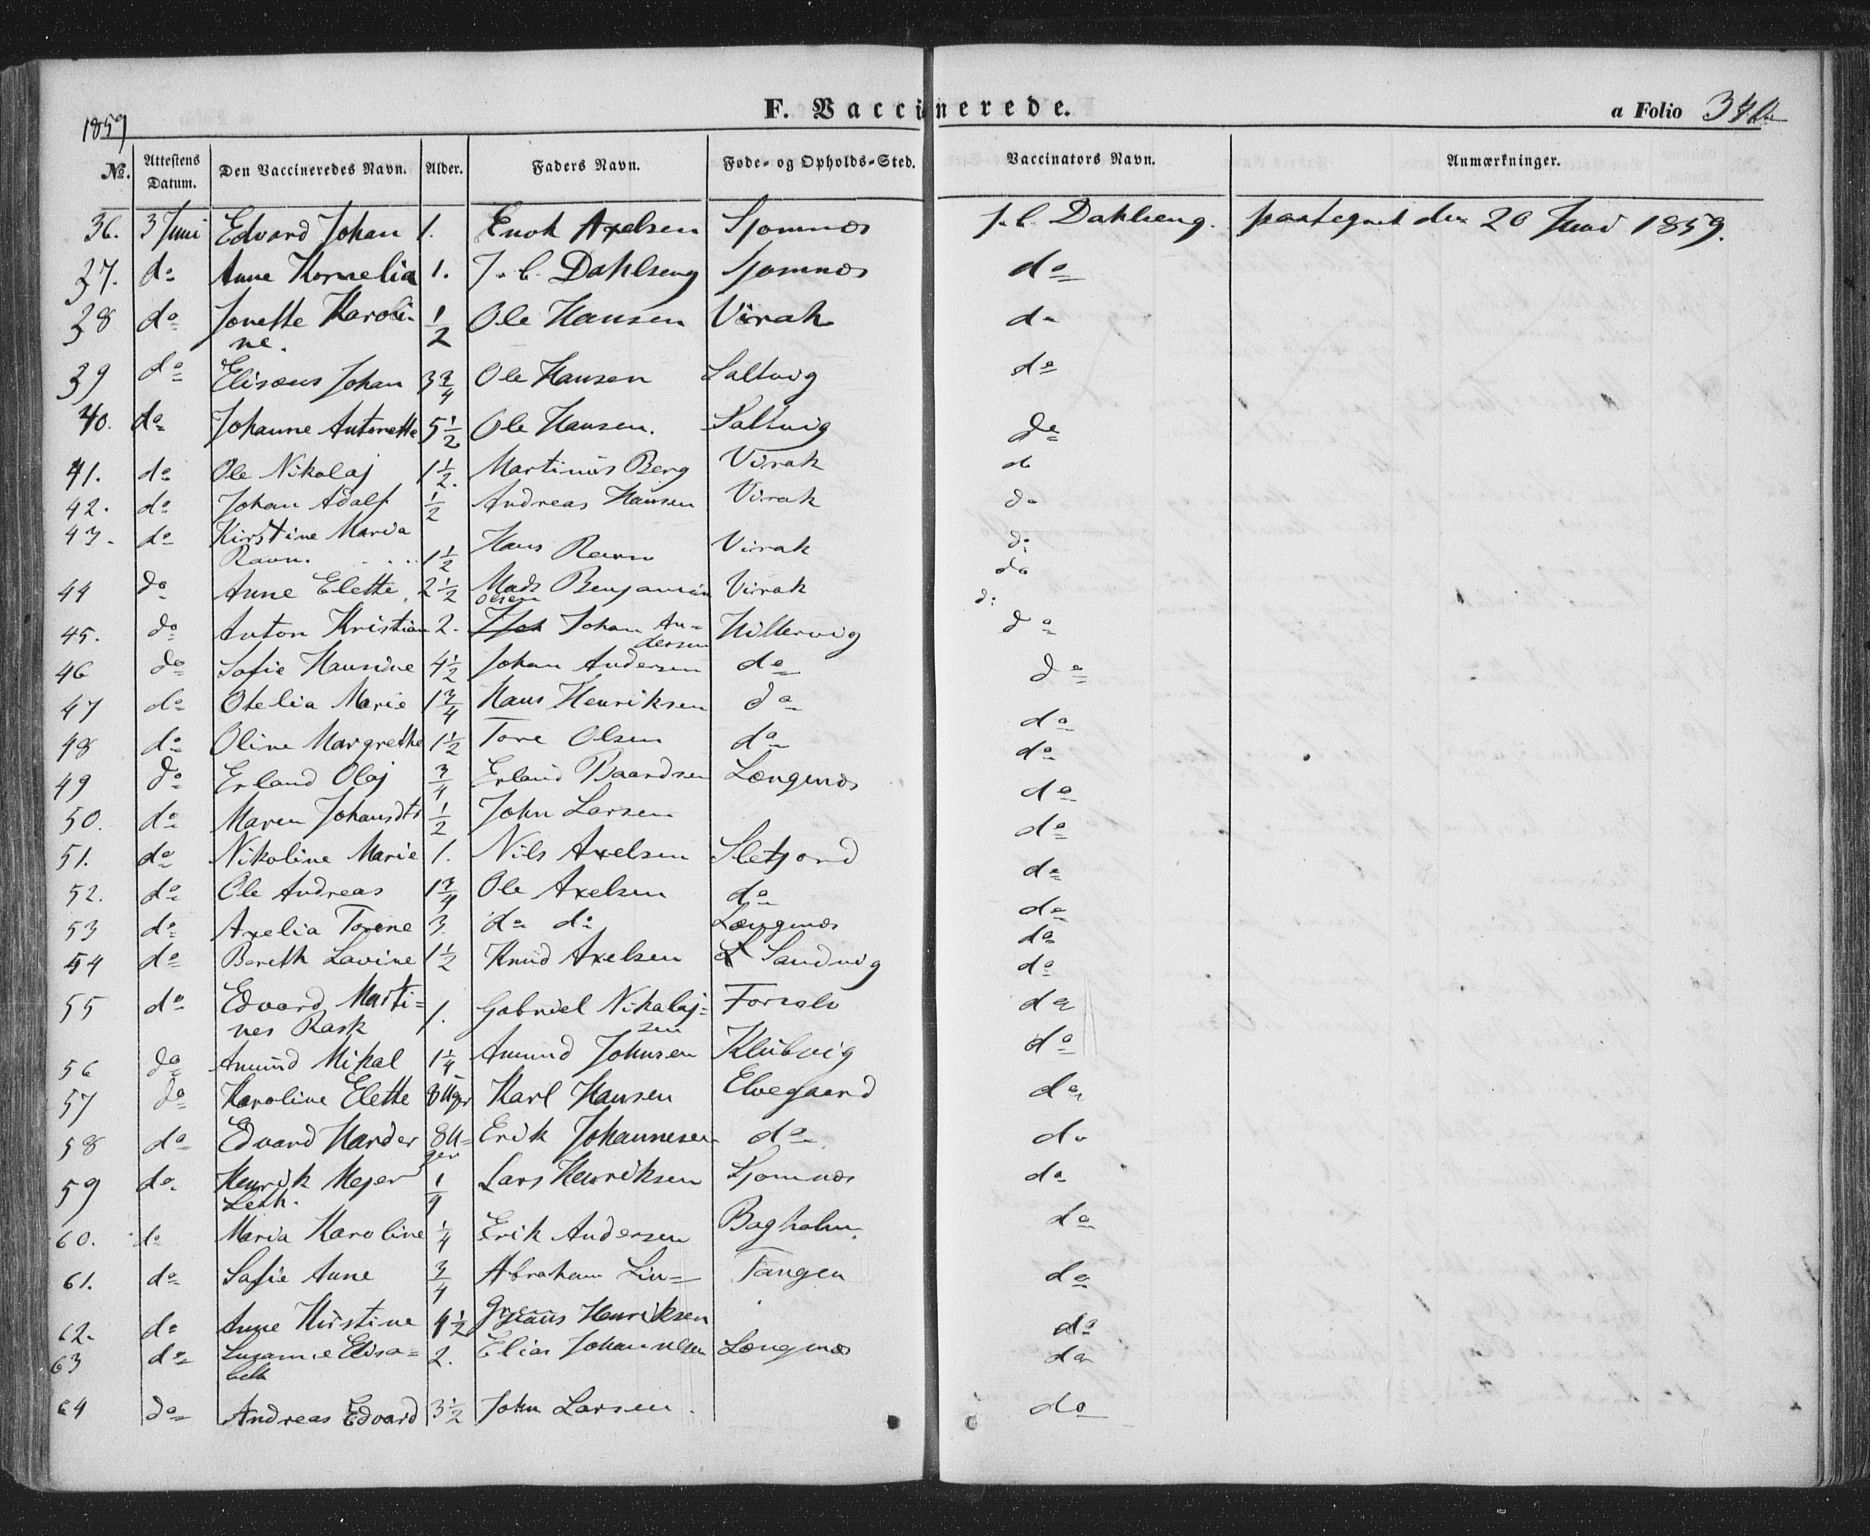 1859
F. Vaccinerede.
a Folio
No. Attestens Datum. Den Vaccineredes Navn. Alder. Faders Navn. Føde- og Opholds-Sted. Vaccinators Navn. Anmærkninger.
36. 3 Juni Edvard Johan 1. Enok Axelsen Sjomnæs J. C. Dahlseng. paategnet den 20 Juni 1859.
37. do Anne Kornelia 1. J. C. Dahlseng Sjomnæs do
38 do Jonette Karoline. 1/2 Ole Hansen Virak do
39 do Elisæus Johan 3 3/4 Ole Hansen Saltvig do
40. do Johanne Antonette 5 1/2 Ole Hansen. Saltvig do
41. do Ole Nikolaj 1 1/2. Martinus Berg Virak do
42. do Johan Adalf 1/2 Andreas Hansen Virak do
43. do Kirstine Maria
Ravn. 1 1/2 Hans Ravn Virak do
44 do Anne Elette 2 1/2 Mads Benjamin Olsen Virak do
45. do Anton Kristian 2. Johan An-
dersen Hillervig do
46 do Sofie Hansine 4 1/2 Johan Andersen do do
47 do Otelia Marie 1 3/4 Hans Henriksen do do
48 do Oline Margrethe 1 1/2 Tore Olsen do do
49 do Erland Olaj 3/4 Erland Baardsen Længenæs do
50. do Maren Johansdtr 1/2 John Larsen do
51. do Nikoline Marie 1. Nils Axelsen Sletjord do
52. do Ole Andreas 1 3/4 Ole Axelsen do do
53 do Axelia Torene 3. do do Længenæs do
54 do Bereth Lavine 1 1/2 Knud Axelsen Sandvig do
55 do Edvard Marti-
nes Rask 1. Gabriel Nikolaj-
sen Forselv do
56 do Amund Mikal 1 1/4 Amund Johnsen Klubvig do
57 do Karoline Elette 8 Uger Karl Hansen Elvegaard do
58 do Edvard Harder 8 U-
ger Erik Johannesen do do
59 do Henrik Mejer
Leth. 1/4 Lars Henriksen Sjomnæs do
60. do Maria Karoline 1/4 Erik Andersen Bagholm. do
61. do Safie Anne 3/4 Abraham Lin- Tangen do
62. do Anne Kirstine 4 1/2 Henriksen do
63 do Susanne Elisa-
beth 2. Elias Johannesen Længenæs do
64 do Andreas Edvard 3 1/2 John Larsen. do